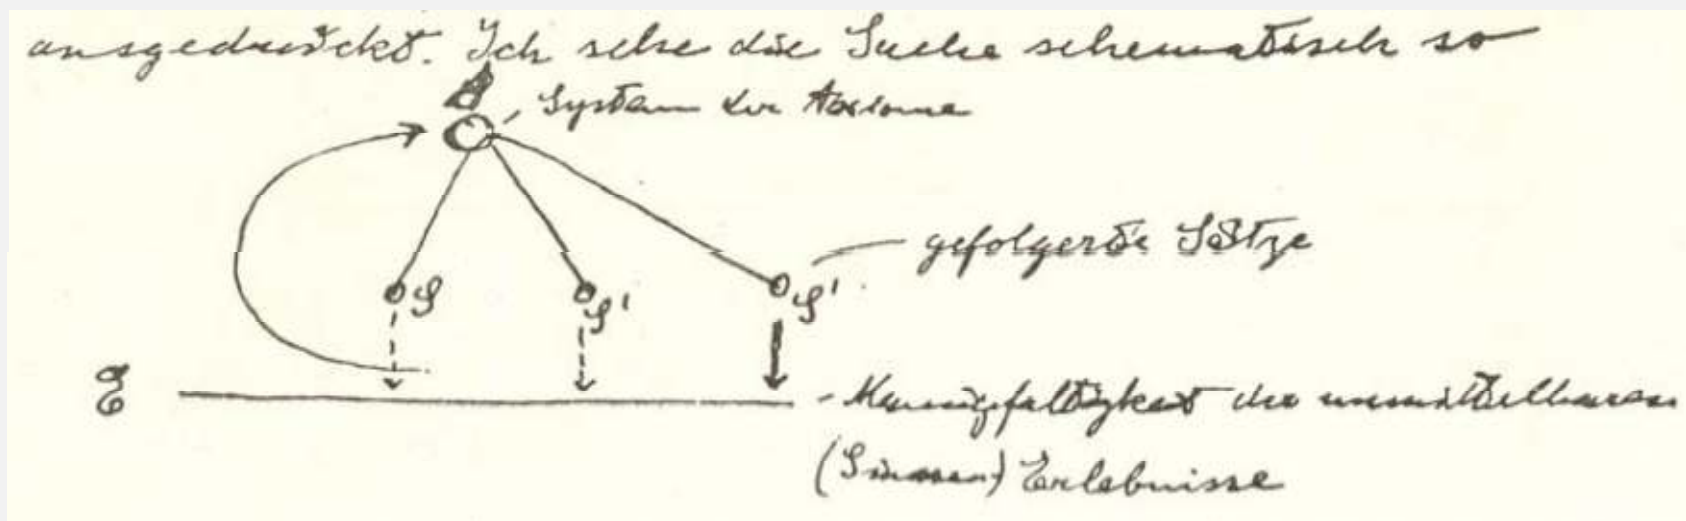 ausgedrückt. Ich sehe die Sache schematisch so
A
System der Axiome
gefolgerte Sätze
S S' S'
E - Mannigfaltigkeit der unmittelbaren
(Sinnes) Erlebnisse